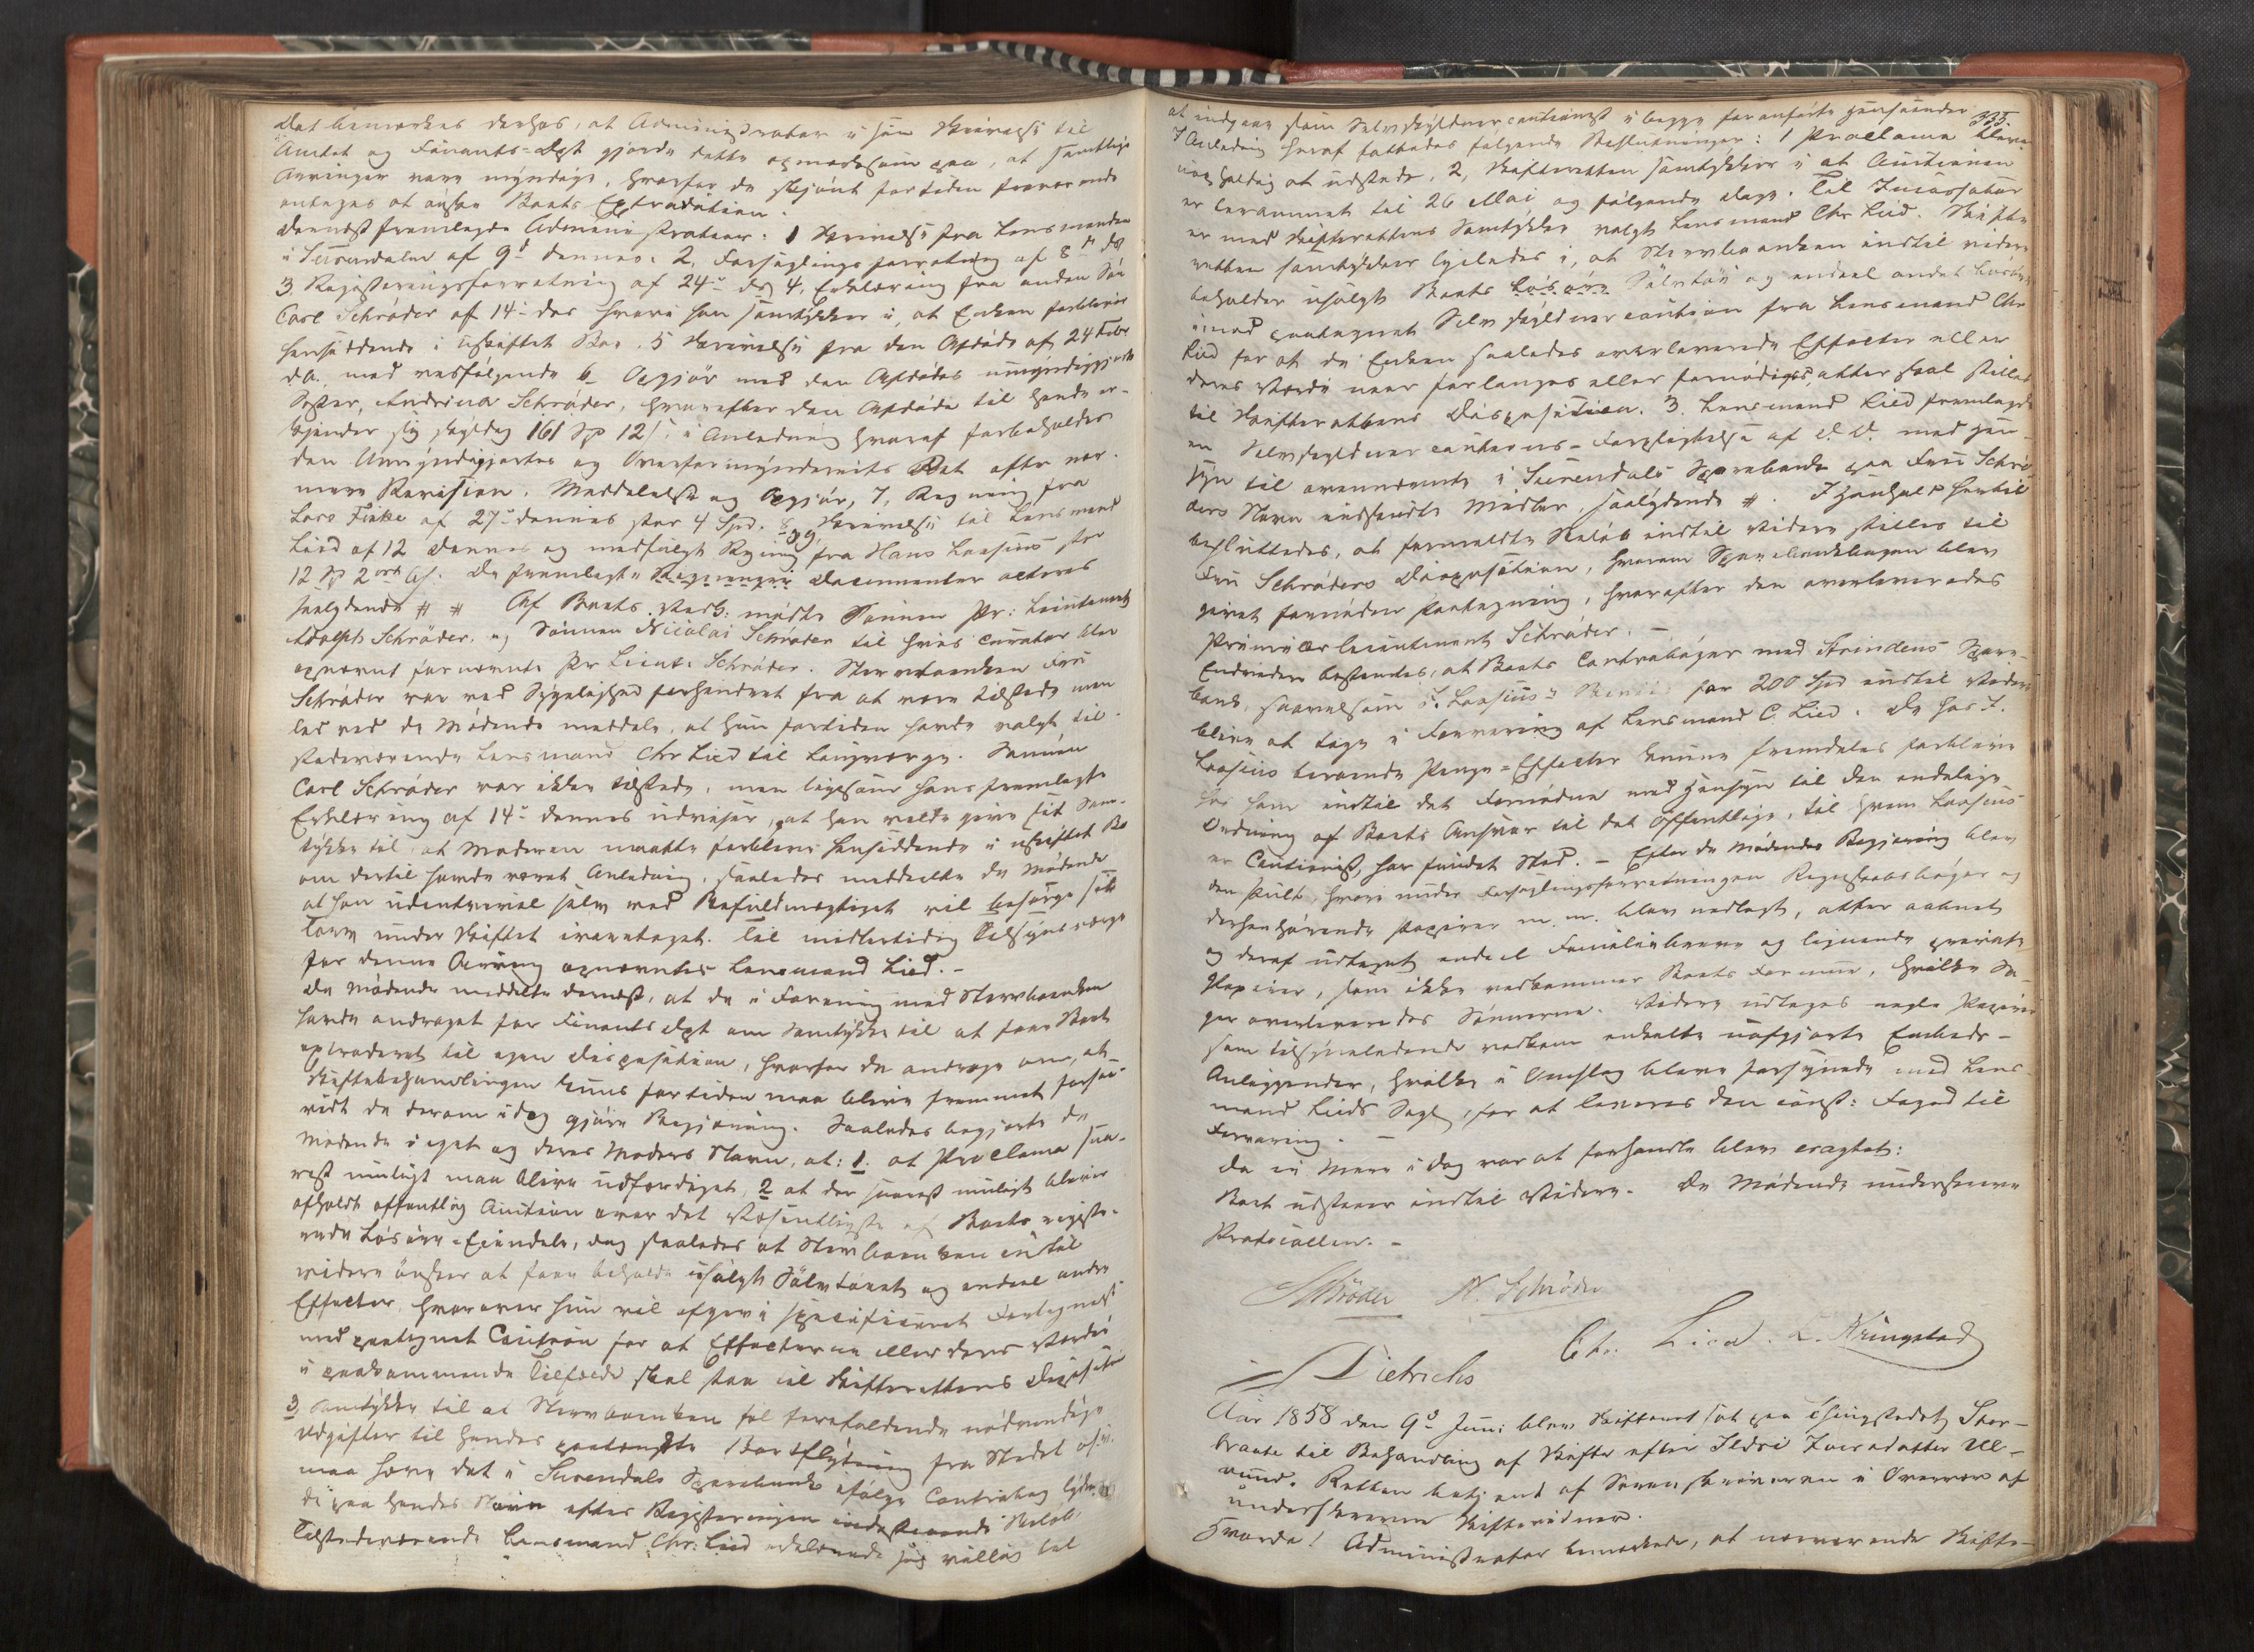 Det bemærkes derhos, at Administrator i sin Skrivelse til
Amtet og Finants-Dept gjorde dette opmærksom paa, at samtlige
Arvinger vare myndige, hvorfor de skjønt for tiden fraværende
antages at ønske Boets Extradition.
Dernæst fremlagde Administrator: 1 Skrivelse fra Lensmanden
i Surendalen af 9de dennes. 2, Forseglingsforretning af 8de ds
3. Registreringsforretning af 24de ds 4, Erklæring fra anden Søn
Carl Schrøder af 14de ds hvori han samtykker i, at Enken forbliver
hensiddende i uskiftet Bo. 5 Skrivelse fra den Afdøde af 24 Febr
d.A. med vedfølgende 6 Opgjør med den Afdødes umyndiggjorte
Søster, Andrina Schrøder, hvorefter den Afdøde til hende er-
kjender sig skyldig 161 Sp 12 s. i Anledning hvoraf forbeholdes
den Umyndiggjortes og Overformynderiets Ret efter nær-
mere Revision, Meddelelse og Opgjør, 7, Regning fra
Lars Finke af 27de dennes stor 4 Spd. 8, Skrivelse til Lensmand
Lied af 12 dennes og medfulgt 9, Regning fra Hans Laasius stor
12 Sp 2 ort 6 s. De fremlagte Regninger Documenter acteres
saalydende # # Af Boets Vedk: mødte Sønnen Pr: Lieutenant
Adolph Schrøder, og Sønnen Nicolai Schrøder til hvis Curator blev
opnævnt fornævnte Pr Lieut: Schrøder. Stervboenken Fru
Schrøder var ved Sygelighed forhindret fra at være tilstede men
lod ved de Mødende meddele, at hun for tiden havde valgt til-
stedeværende Lensmand Chr Lied til Laugværge. Sønnen
Carl Schrøder var ikke tilstede, men ligesom hans fremlagte
Erklæring af 14de dennes udviser, at han vilde give sit Sam-
tykke til at Moderen maatte forblive hensiddende i uskiftet Bo
om dertil havde været Anledning, saaledes meddelte de Mødende
at han udentvivl selv ved Befuldmægtiget vil besørge sit
Tarv under Skiftet ivaretaget. Til midlertidig Tilsynsværge
for denne Arving opnævntes Lensmand Lied.-
De Mødende meddelte dernæst, at de i Forening med Stervboenken
havde andraget for Finants Dept om Samtykke til at faae Boet
extraderet til egen Disposition, hvorfor de androge om, at
Skiftebehandlingen kuns for tiden maa blive fremmet forsaa-
vidt de derom idag gjøre Begjæring. Saaledes begjærte de
Mødende i eget og deres Moders Navn, at: 1. at Proclama sna-
rest muligt maa blive udfærdiget, 2 at der snarest muligt bliver
afholdt offentlig Auction over det Væsentligste af Boets registre-
rede Løsøre-Eiendele, dog saaledes at Stervboenken indtil
videre ønsker at faae beholde usolgt Sølvtøiet og endeel andre
Effecter, hvorover hun vil afgive specificeret Fortegnelse
med paategnet Caution for at Effecterne eller deres Værdi
i paakommende Tilfælde skal staa til Skifterettens Disposition
3, Samtykke til at Stervboenken til forefaldende nødvendige
Udgifter til hendes paatænkte Bortflytning fra Stedet o.s.v.
maa hæve det i Surendals Sparebank ifølge Contrabog lyden-
de paa hendes Navn efter Registreringen indestaaende Beløb.
Tilstedeværende Lensmand Chr: Lied erklærede sig villig til
335.
at indgaae som Selvskyldnercautionist i begge foranførte Henseender.
I Anledning heraf fattedes følgende Beslutninger: 1 Proclama bliver
uopholdelig at udstede, 2, Skifteretten samtykker i at Auctionen
er berammet til 26 Mai og følgende Dage. Til Incassator
er med Skifterettens Samtykke valgt Lensmand Chr Lied. Skifte-
retten samtykker ligeledes i, at Stervboenken indtil videre
beholder usolgt Boets Løsøre Sølvtøi og endeel andet Løsøre
imod paategnet Selvskyldnercaution fra Lensmand Chr
Lied for at de Enken saaledes overleverede Effecter eller
deres Værdi naar forlanges eller fornødiges, atter skal stilles
til Skifterettens Disposition. 3. Lensmand Lied fremlagde
en Selvskyldnercautions-Forpligtelse af D.D. med Hen-
syn til ovennævnte i Surendals Sparebank paa Fru Schrø-
ders Navn indsatte Midler, saalydende #. I Henhold hertil
besluttedes, at formeldte Beløb indtil Videre stilles til
Fru Schrøders Disposition, hvorom Sparebankbogen blev
givet fornøden Paategning, hvorefter den overleveredes
Premierlieutenant Schrøder. -
Endvidere bestemtes, at Boets Contrabøger med Strindens Spare-
bank, saavelsom J. Laasius's Beviis for 200 Spd indtil Videre
bliver at tage i Forvaring af Lensmand C. Lied. De hos J.
Laasius beroende Penge-Effecter kunne fremdeles forblive
hos ham indtil det Fornødne med Hensyn til den endelige
Ordning af Boets Ansvar til det Offentlige, til hvem Laasius
er Cautionist, har fundet Sted. - Efter de Mødendes Begjæring blev
den Pult, hvori under Forseglingsforretningen Regnskabsbøger og
derhenhørende Papirer m.m. blev nedlagt, atter aabnet
og deraf udtaget endeel Familiebreve og lignende private
Papirer, som ikke vedkommer Boets Formue, hvilke Sa-
ger overleveredes Sønnerne. Videre udtoges nogle Papirer
som tilsyneladende vedkom enkelte uafgjorte Embeds-
Anliggender, hvilke i Omslag bleve forsynede med Lens-
mand Lieds Segl, for at leveres den const: Foged til
Forvaring. -
Da ei Mere i dag var at forhandle blev eragtet:
Boet udstaaer indtil Videre. De Mødende underskreve
Protocollen. -
Schrøder N. Schrøder
Chr. Lied. L. Kringstad
Dietrichs
Aar 1858 den 9de Juni blev Skifteret sat paa Thingstedet Stor-
braate til Behandling af Skifte efter Ildri Iversdatter Ul-
vund. Retten betjent af Sorenskriveren i Overvær af
underskrevne Skiftevidner.
Hvorda! Administrator bemærkede, at nærværende Skifte-